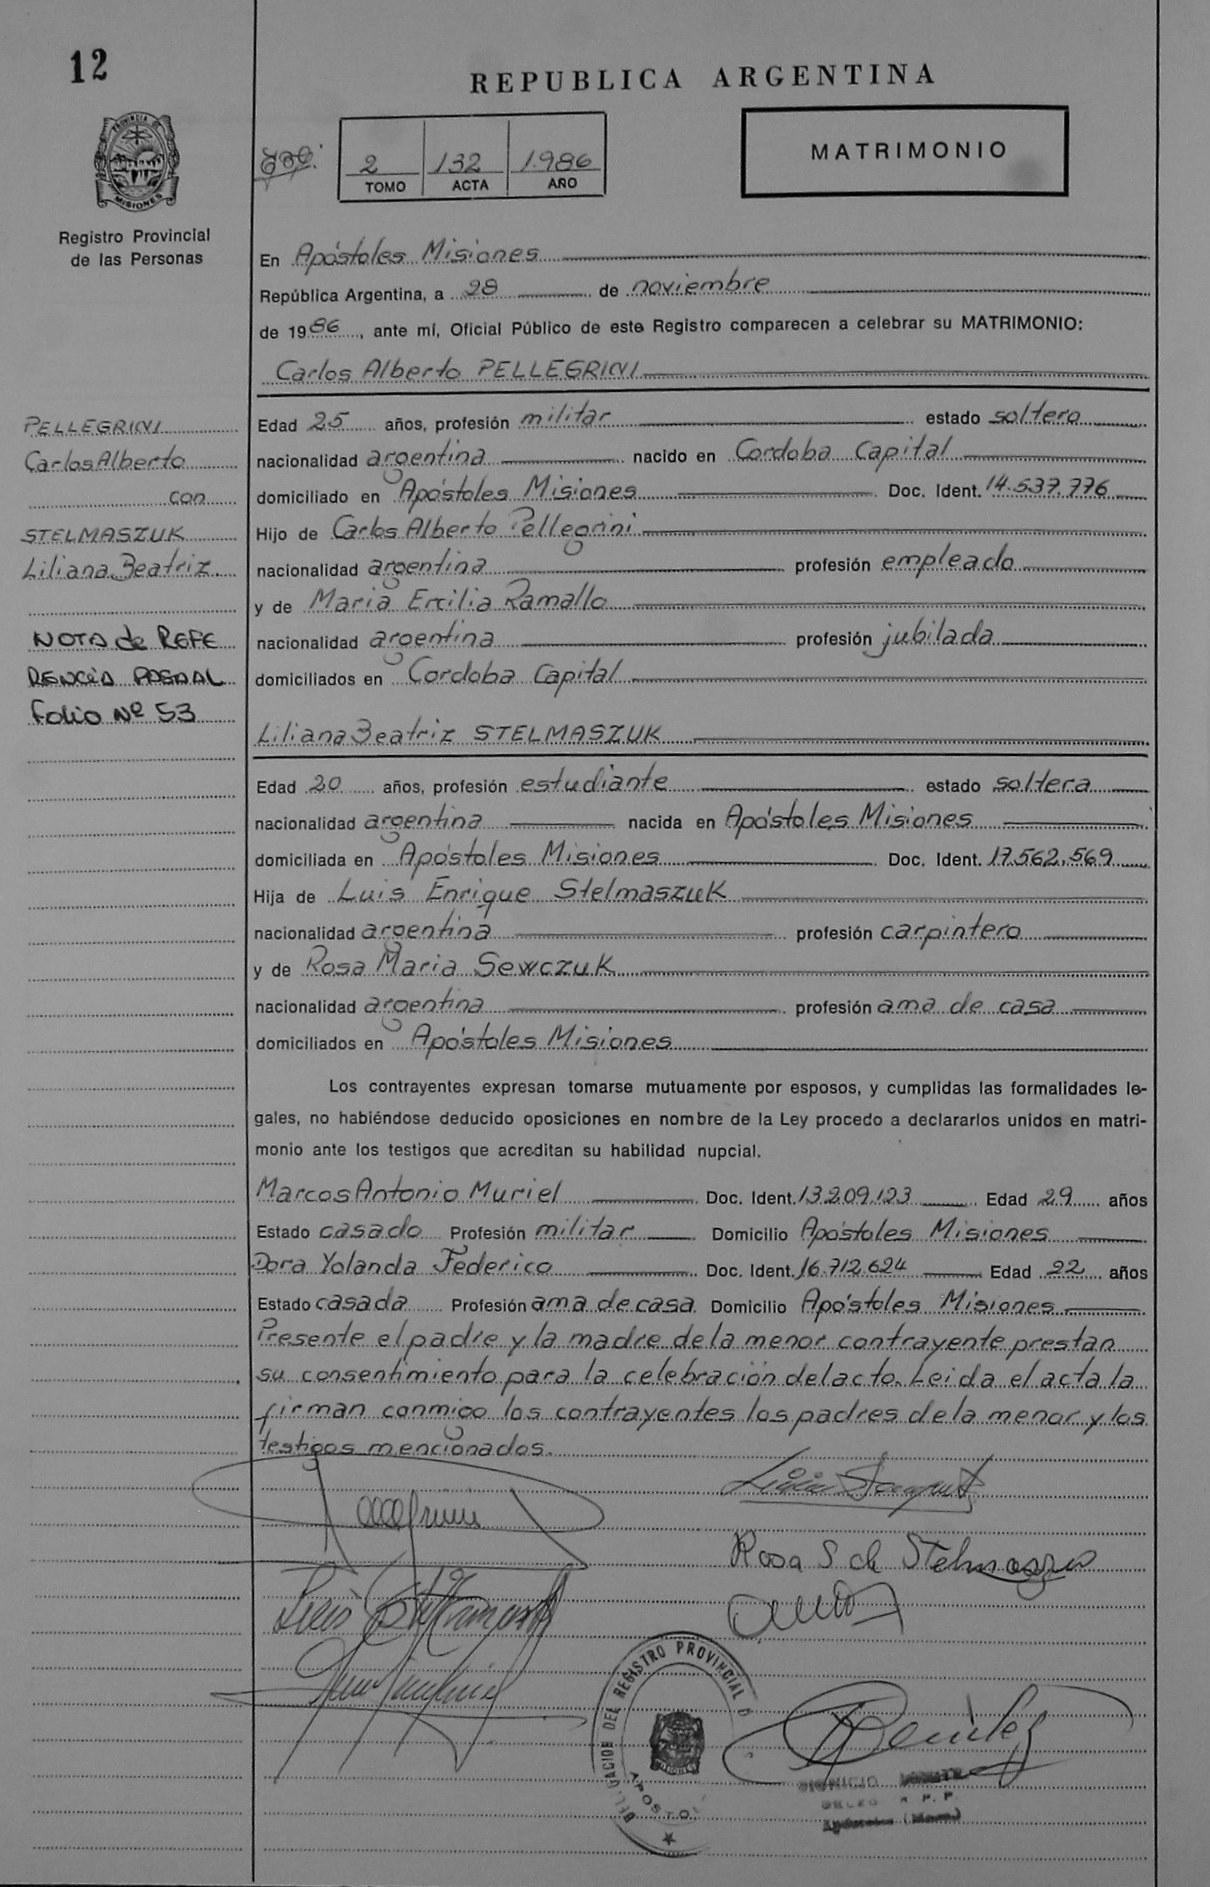 12
REPUBLICA ARGENTINA
PROVINCIA DE
MISIONES
Registro Provincial
de las Personas
2 132 1.986
TOMO ACTA AÑO
MATRIMONIO
En Apóstoles Misiones
República Argentina, a 28 de noviembre
de 1986, ante mí, Oficial Público de este Registro comparecen a celebrar su MATRIMONIO:
Carlos Alberto PELLEGRINI
PELLEGRINI
Carlos Alberto
con
STELMASZUK
Liliana Beatriz
NOTA de REFE
RENCIA
Folio Nº 53
Edad 25 años, profesión militar estado soltero
nacionalidad argentina nacido en Cordoba Capital
domiciliado en Apóstoles Misiones Doc. Ident. 14.537.776
Hijo de Carlos Alberto Pellegrini
nacionalidad argentina profesión empleado
y de Maria Ercilia Ramallo
nacionalidad argentina profesión jubilada
domiciliados en Cordoba Capital
Liliana Beatriz STELMASZUK
Edad 20 años, profesión estudiante estado soltera
nacionalidad argentina nacida en Apóstoles Misiones
domiciliada en Apóstoles Misiones Doc. Ident. 17.562.569
Hija de Luis Enrique Stelmaszuk
nacionalidad argentina profesión carpintero
y de Rosa Maria Sewczuk
nacionalidad argentina profesión ama de casa
domiciliados en Apóstoles Misiones
Los contrayentes expresan tomarse mutuamente por esposos, y cumplidas las formalidades le-
gales, no habiéndose deducido oposiciones en nombre de la Ley procedo a declararlos unidos en matri-
monio ante los testigos que acreditan su habilidad nupcial.
Marcos Antonio Muriel Doc. Ident. 13.209.123 Edad 29 años
Estado casado Profesión militar Domicilio Apóstoles Misiones
Dora Yolanda Federico Doc. Ident. 16.712.624 Edad 22 años
Estado casada Profesión ama de casa Domicilio Apóstoles Misiones
Presente el padre y la madre de la menor contrayente prestan
su consentimiento para la celebración del acto. Leida el acta la
firman conmigo los contrayentes los padres de la menor y los
testigos mencionados.
Rosa S de
DEL REGISTRO PROVINCIAL D